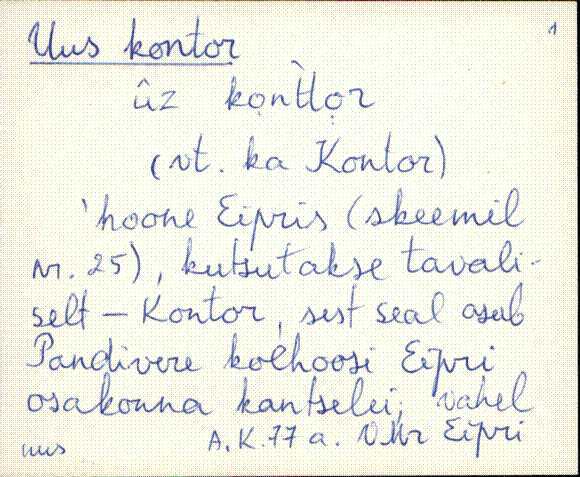 1
Uus kontor
ûz ko̭ǹtto̭r
(vt. ka Kontor)
'hoone Eipris (skeemil
nr. 25), kutsutakse tavali-
selt – Kontor, sest seal asub
Pandivere kolhoosi Eipri
osakonna kantselei, vahel
uus A.K. 77 a. VMr Eipri